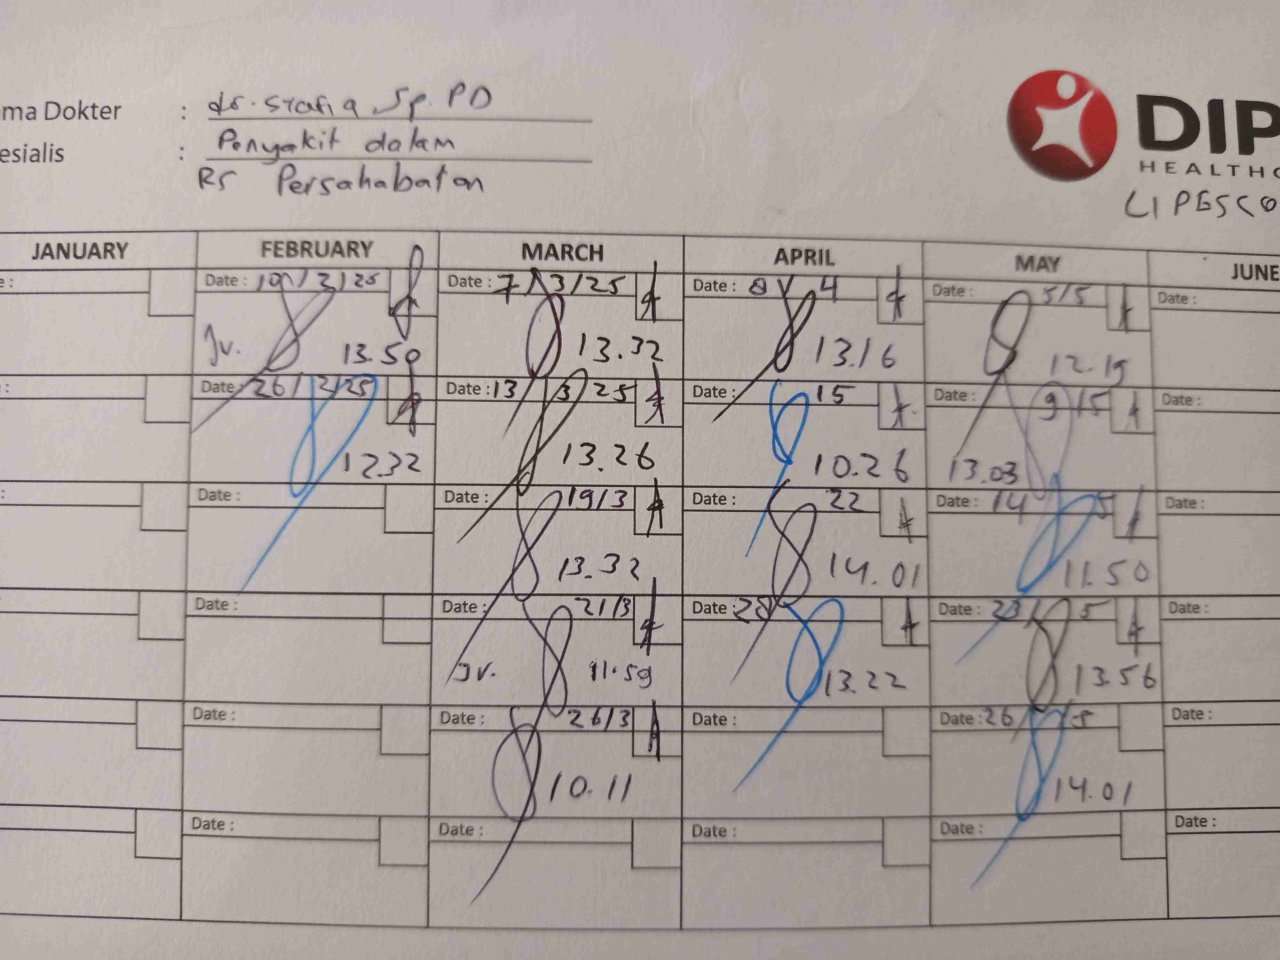 ma Dokter : dr. Syafiq Sp. PD
esialis : Penyakit dalam
RS Persahabatan
DIP
HEALTHC
LIPESCO
JANUARY FEBRUARY MARCH APRIL MAY JUNE
e: Date: 10/2/25 Date: 7/3/25 Date: 8/4 Date: 5/5 Date:
Jv. 13.50 13.32 13.16 12.15
: Date: 26/2/25 Date: 13 3 25 Date: 15 Date: 9/5 Date:
12.32 13.26 10.26 13.03
: Date: Date: 19/3 Date: 22 Date: 14 5 Date:
13.32 14.01 11.50
Date: Date: 21/3 Date: 28 Date: 23/5 Date:
Jv. 11.59 13.22 13.56
Date: Date: 26/3 Date: Date: 26/5 Date:
10.11 14.01
Date: Date: Date: Date: Date: